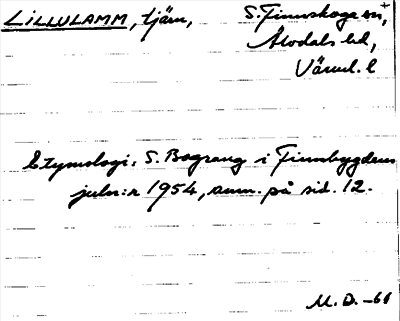 LILLULAMM, tjärn, S. Finnskoga sn,
Älvdals hd,
Värml. l
Etymologi: S. Bograng i Finnbygdens
julnr 1954, anm. på sid. 12.
M. D. -66